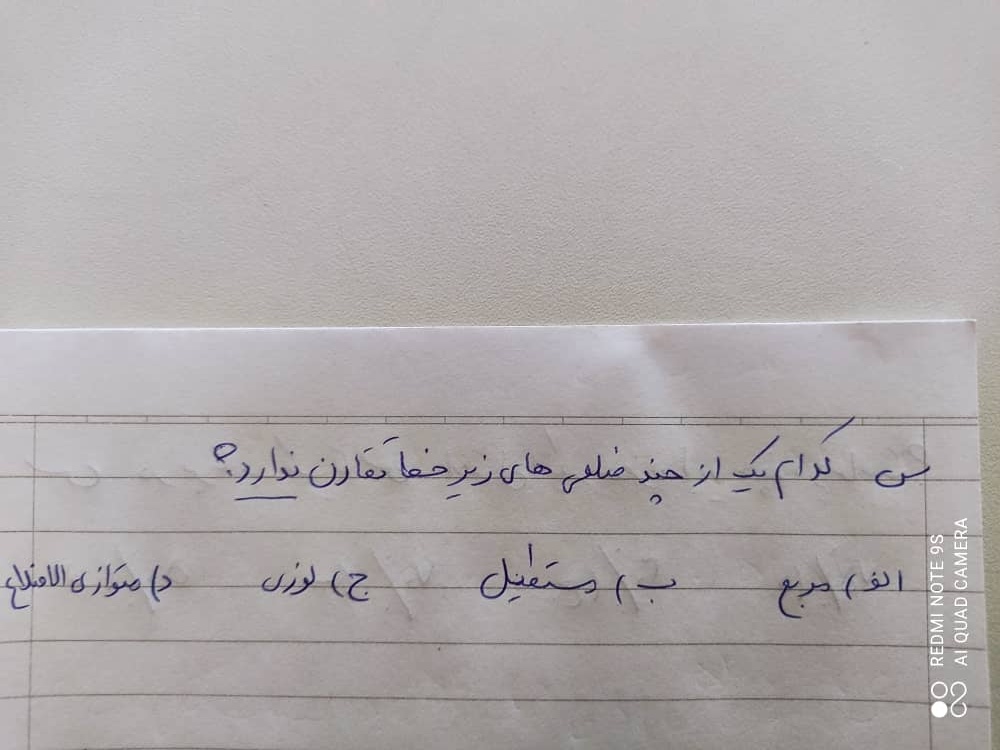 س کدام یک از چند ضلعی های زیر خط تقارن ندارد؟
الف) مربع ب) مستطیل ج) لوزی د) متوازی الاضلاع
REDMI NOTE 9S
AI QUAD CAMERA